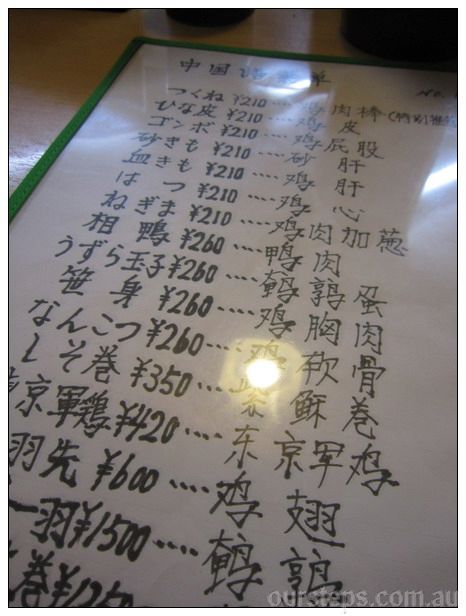 中国語菜单
No.
つくね ¥210....鸡肉棒
ひな皮 ¥210....鸡皮
ゴンボ ¥210....鸡屁股
砂ぎも ¥210....砂肝
血きも ¥210....鸡肝
はつ ¥210....鸡心
ねぎま ¥210....鸡肉加葱
相鴨 ¥260....鸭肉
うずら玉子 ¥260....鹌鹑蛋
笹身 ¥260....鸡胸肉
なんこつ ¥260....鸡软骨
しそ巻 ¥350....紫蘇巻
京軍鶏 ¥420....东京军鸡
羽先 ¥600....鸡翅
一羽 ¥1500....鹌鹑
巻
oursteps.com.au